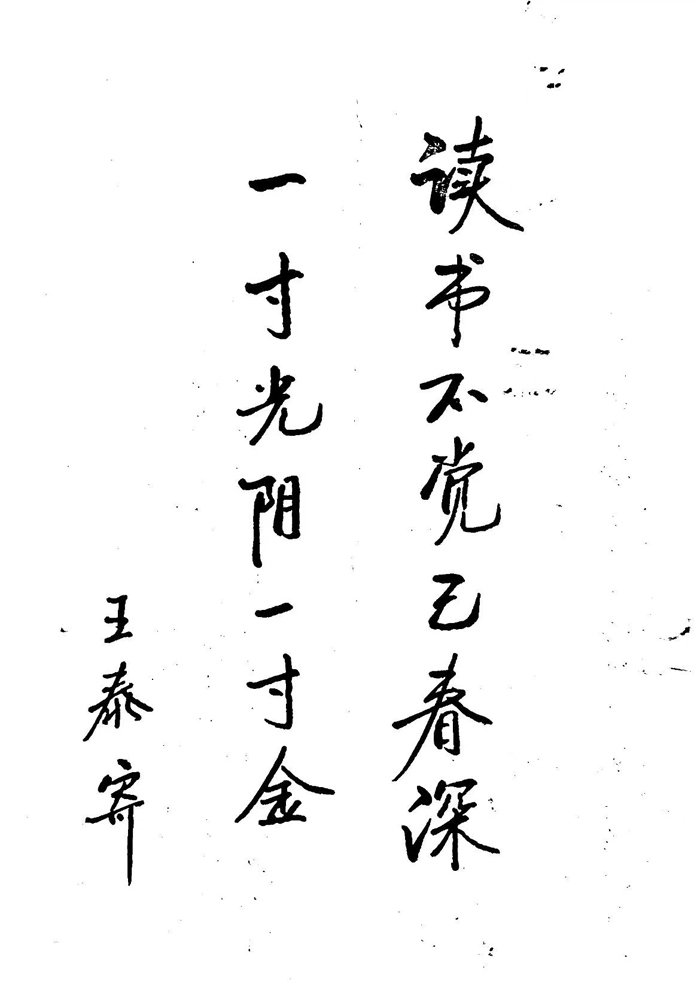 读书不觉已春深
一寸光阴一寸金
王泰寄